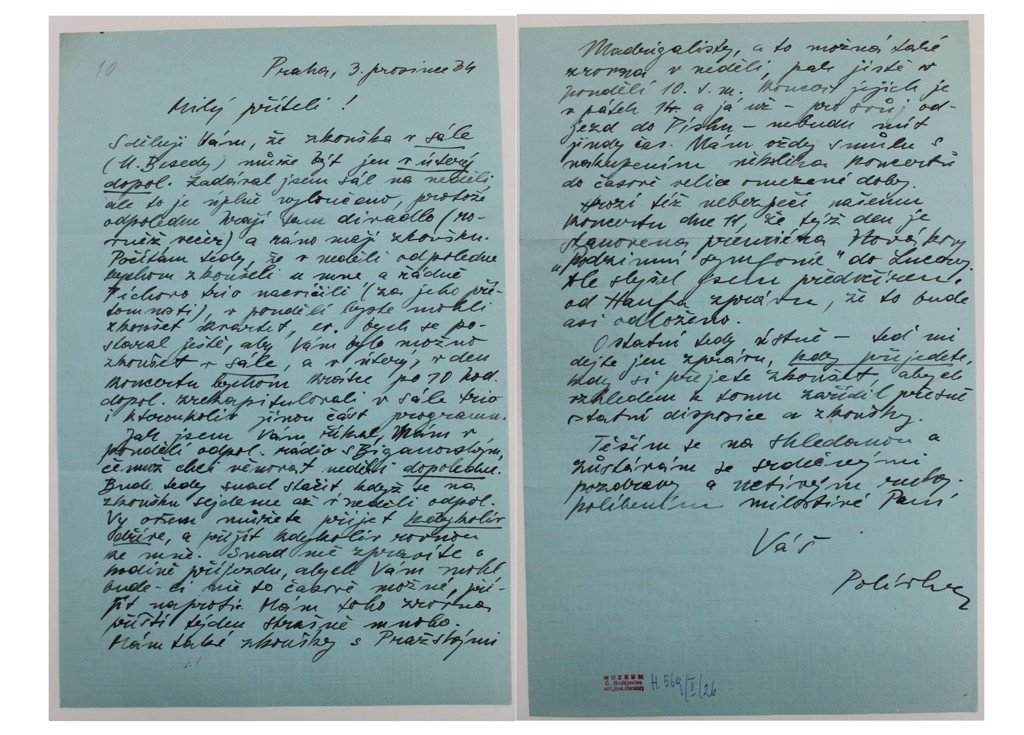 10
Praha, 3. prosince 34
Milý příteli!
Sděluji Vám, že zkouška v sále
(U. Besedy) může být jen v úterý
dopol. Zadával jsem sál na neděli
ale to je úplně vyloučeno, protože
odpoledne hrají tam divadlo (ro-
vněž večer) a ráno mají zkoušku.
Počítám tedy, že v neděli odpoledne
bychom zkoušeli u mne a řádně
Píchovo trio nacvičili (za jeho pří-
tomnosti), v pondělí byste mohli
zkoušet kvartet, ev. bych se po-
staral ještě, aby Vám bylo možno
zkoušet v sále, a v úterý, v den
koncertu bychom krátce po 10 hod.
dopol. zrekapitulovali v sále trio
i kteroukoliv jinou část programu.
Jak jsem Vám říkal, mám v
pondělí odpol. rádio s
čemuž chci věnovat neděli dopoledne.
Bude tedy snad stačit když se na
zkoušku sejdeme až v neděli odpol.
Vy ovšem můžete přijet kdykoliv
dříve, a přijít kdykoliv rovnou
ke mně. Snad mě zpravíte o
hodině příjezdu, abych Vám mohl
bude-li mě to časově možné, při-
jít naproti. Mám toho zrovna
příští týden strašně mnoho.
Mám také zkoušky s Pražskými
Madrigalisty, a to možná také
zrovna v neděli, pak jistě v
pondělí 10. t. m. Koncert jejich je
v pátek 14. a já už – pro svůj od-
jezd do Písku – nebudu mít
jindy čas. Mám vždy smůlu s
nakupením několika koncertů
do časově velice omezené doby.
Hrozí též nebezpečí našemu
koncertu dne 11, že týž den je
stanovena premiéra Novákovy
"Podzimní symfonie" do Lucerny.
Ale slyšel jsem předvčírem
od zprávu, že to bude
asi odloženo.
Ostatní tedy ústně – teď mi
dejte jen zprávu, kdy přijedete,
kdy si přejete zkoušet abych
vzhledem k tomu zařídil přesně
ostatní disposice a zkoušky.
Těším se na shledanou a
zůstávám se srdečnými
pozdravy a uctivým ruky-
políbením milostivé Paní
Váš
MUZEUM
Č. Budějovice
H 569/I/26